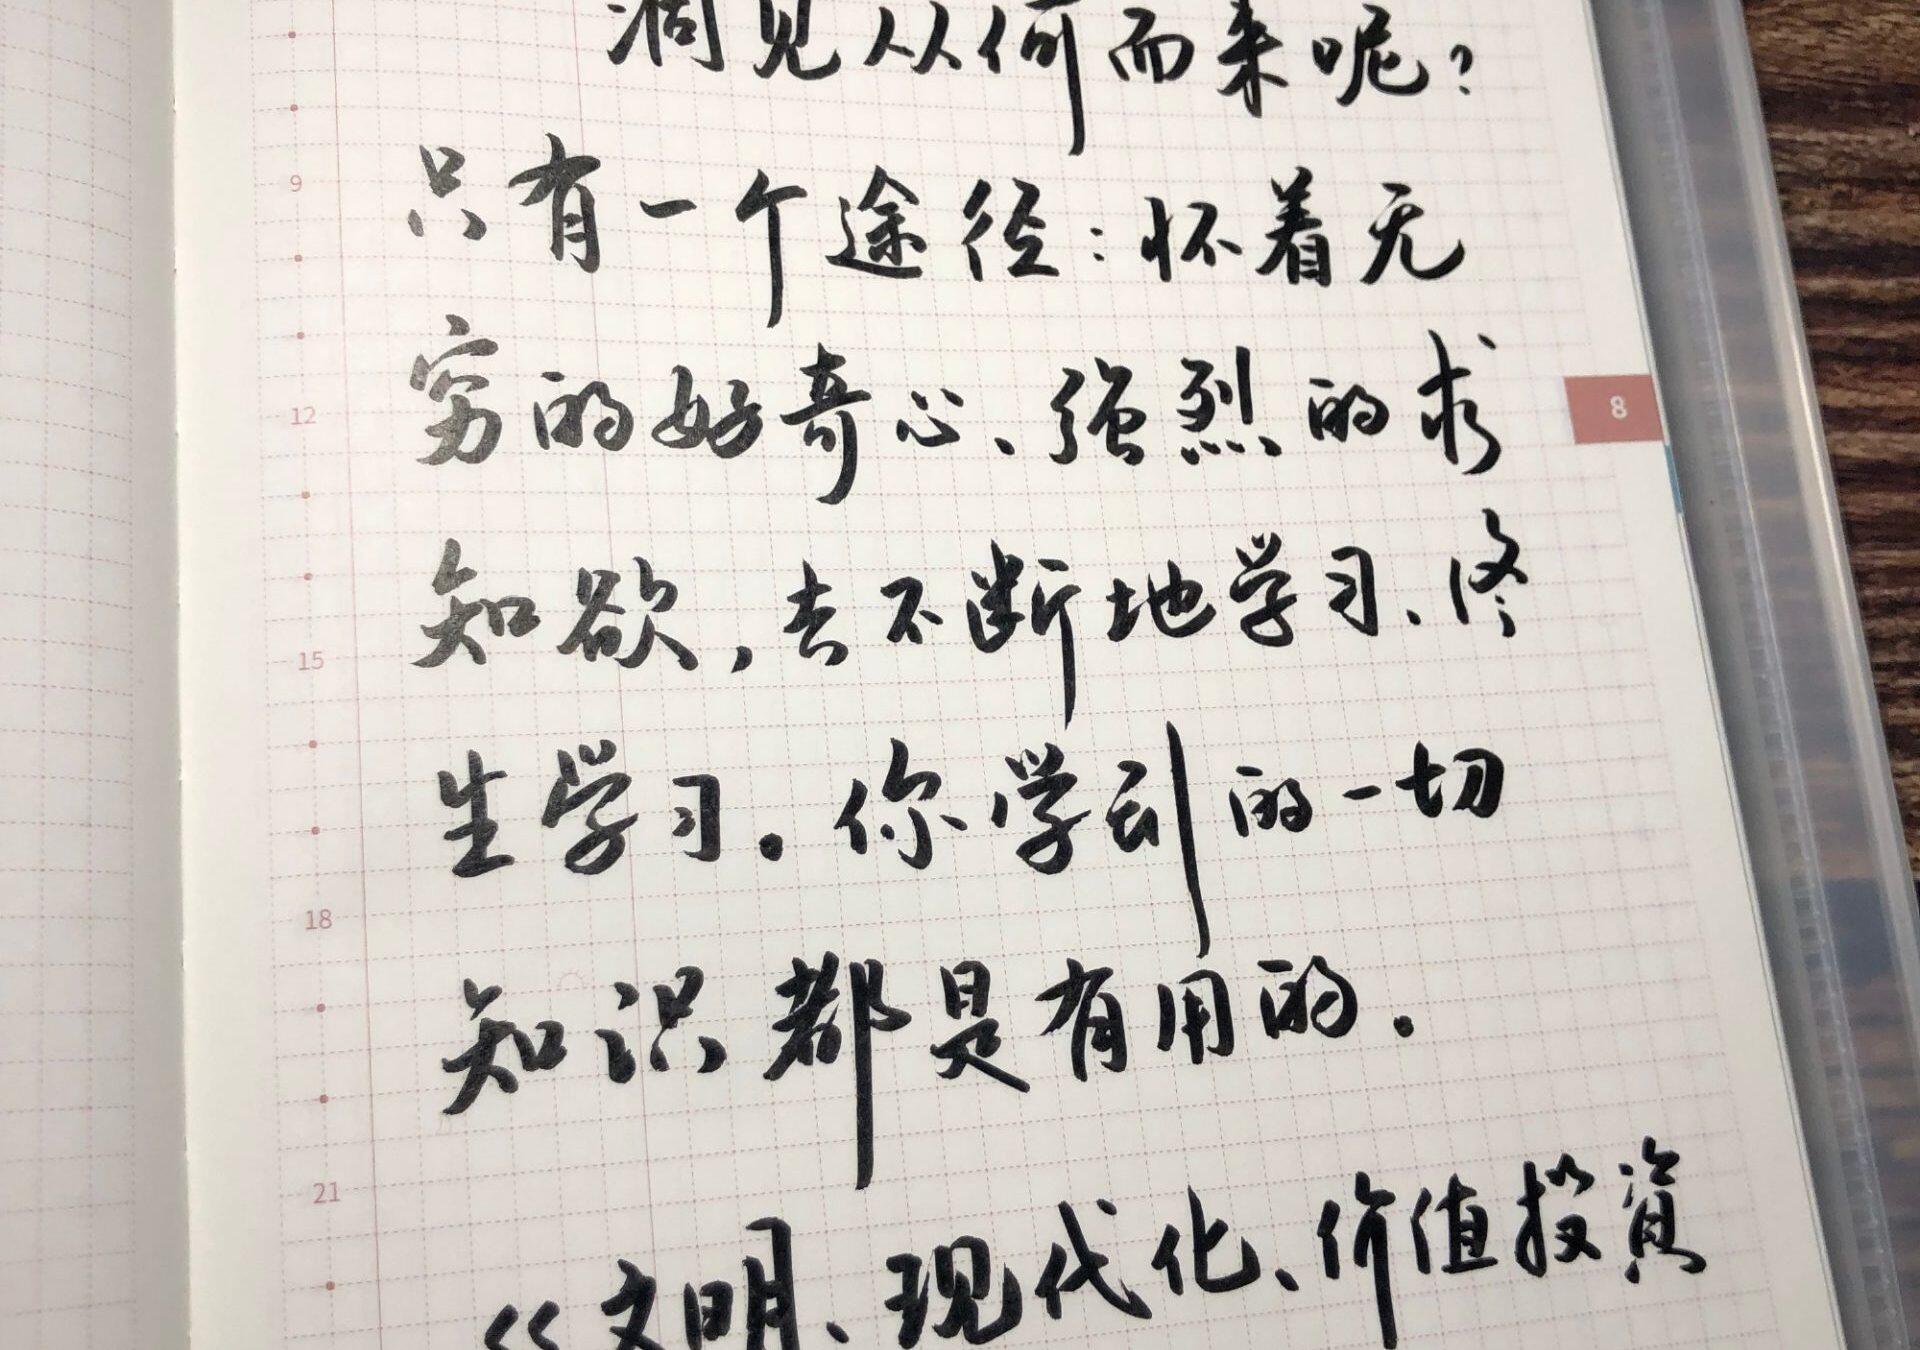 洞见从何而来呢?
只有一个途径:怀着无
9
穷的好奇心、强烈的求
12
8
知欲,去不断地学习、终
15
生学习。你学到的一切
18
知识都是有用的.
21
《文明、现代化、价值投资